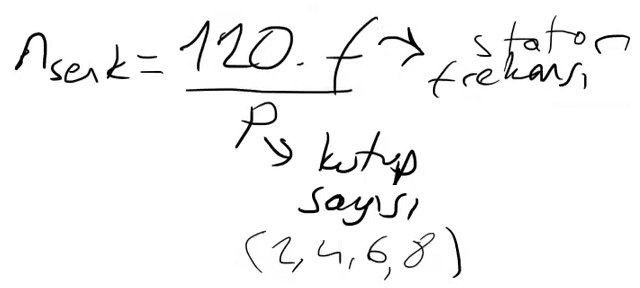 nsenk = 120.f → stator
frekansı
P → kutup
sayısı
(2, 4, 6, 8)